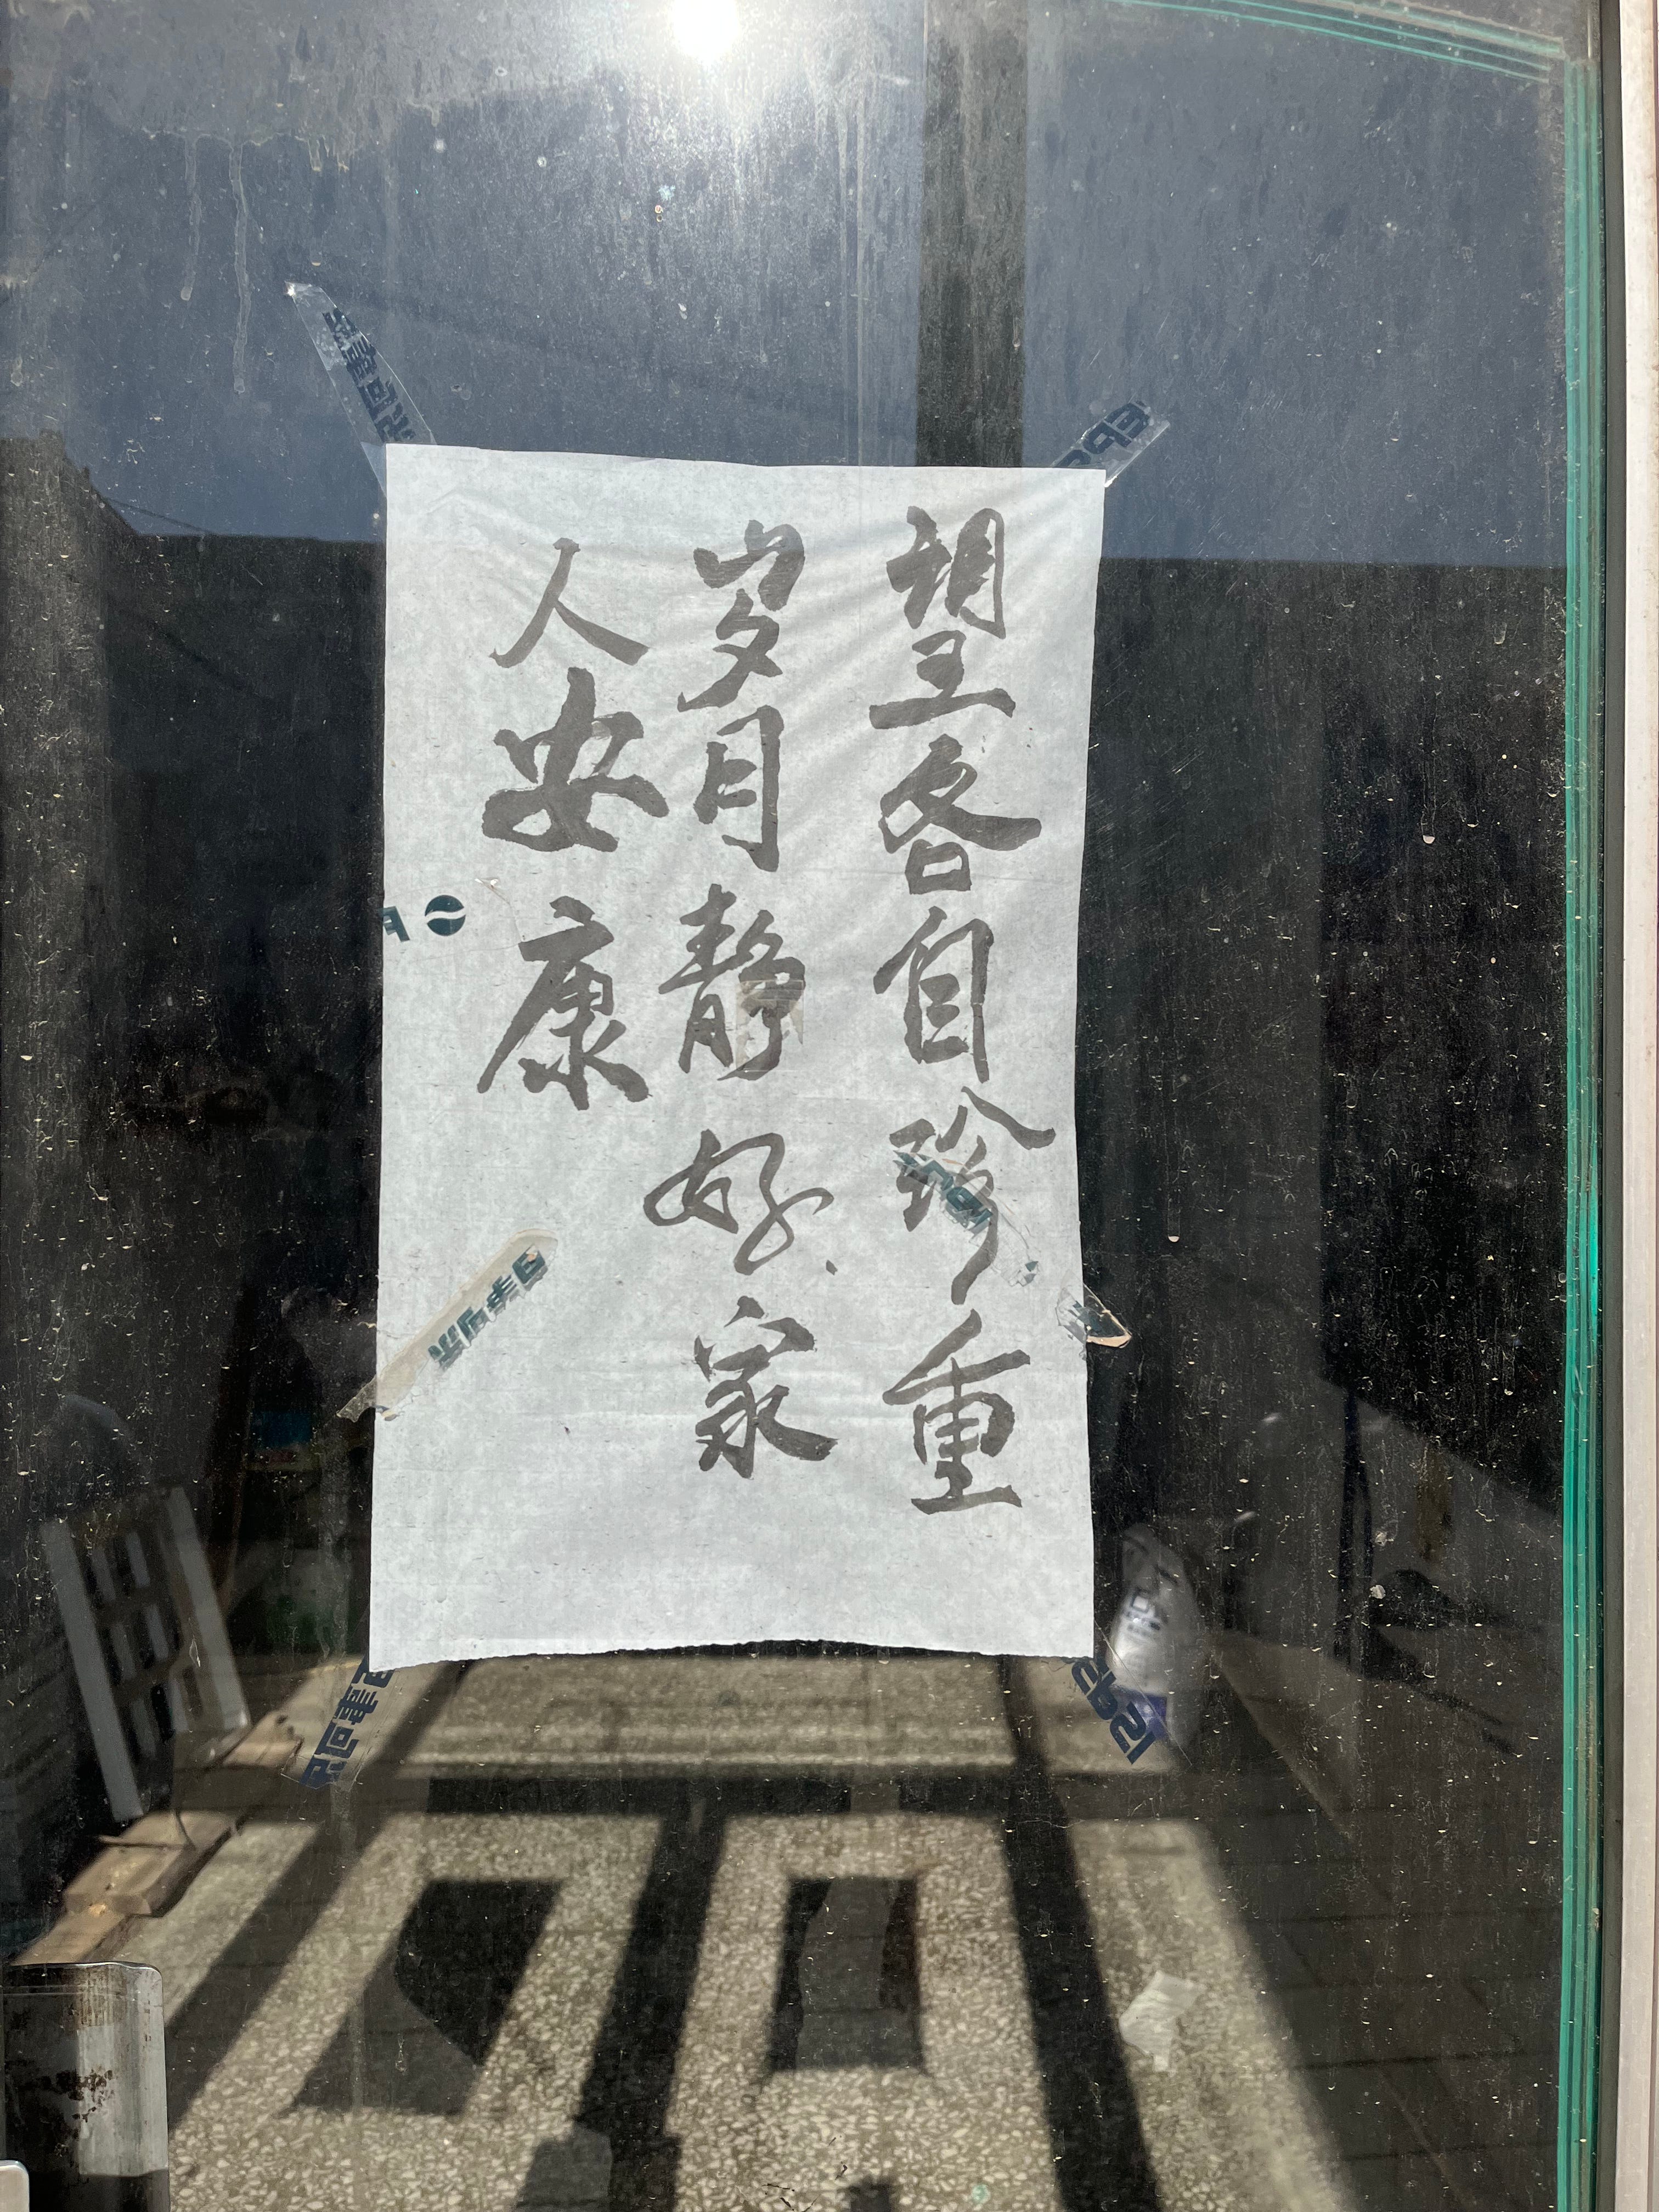 望各自珍重
岁月静好家
人安康